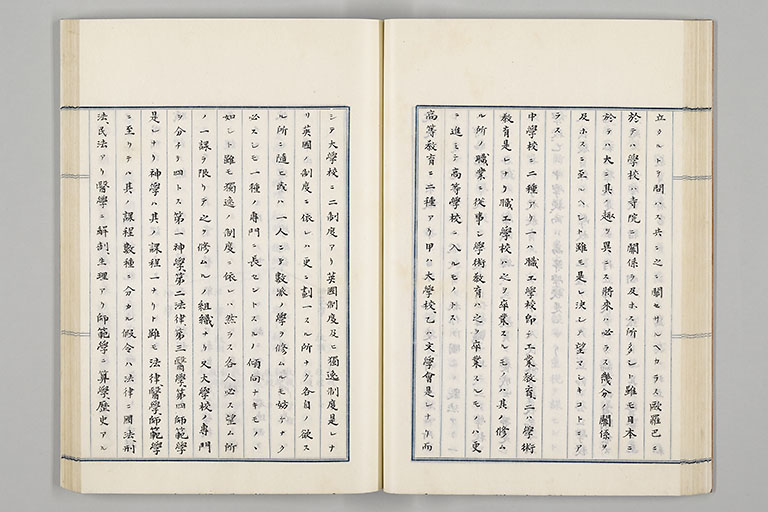 立タルトヲ問ハス共ニ之ニ關セサルヘカラス歐羅巴ニ
於テハ學校ハ寺院ニ關係ヲ及ホス所少ナシト雖モ日本ニ
於テハ大ニ其趣ヲ異ニス將來ハ必ラス幾分ノ關係ヲ
及ホスニ至ルヘシト雖モ是レ決シテ望マシキコトニア
ラス
中學校ニ二種アリ一ハ職工學校即チ工業教育二ハ學術
教育是レナリ職工學校ハ之ヲ卒業スルモノハ其ノ修ム
ル所ノ職業ニ從事シ學術教育ハ之ヲ卒業スルモノハ更
ニ進ミテ高等學校ニ入ルモノトス
高等教育ニ二種アリ甲ハ大學校乙ハ文學會是レナリ而
シテ大學校ニ二制度アリ英國制度及ヒ獨逸制度是レナ
リ英國ノ制度ニ依レハ更ニ劃一スル所ナク各自ノ欲ス
ル所ニ隨ヒ或ハ一人ニシテ數派ノ學ヲ修ムルモ妨ケナク
必スシモ一種ノ專門ニ長セントスルノ傾向ナキモノヽ
如シト雖モ獨逸ノ制度ニ依レハ然ラス各人必ス望ム所
ノ一課ヲ限リテ之ヲ修ムルノ組織ナリ又大學校ノ專門
ヲ分チテ四トス第一神學、第二法律、第三醫學、第四師範學
是レナリ神學ハ其ノ課程一ナリト雖モ法律醫學師範學
ニ至リテハ其ノ課程數種ニ分カル假令ハ法律ニ國法刑
法、民法アリ醫學ニ解剖、生理アリ師範學ニ算學歷史アル